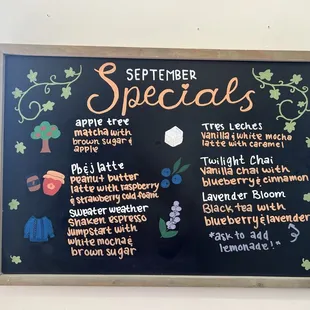 SEPTEMBER
Specials
apple tree
matcha with
brown sugar &
apple
Pb&j latte
peanut butter
latte with raspberry
& strawberry cold foam
Sweater weather
Shaken espresso
Jumpstart with
white mocha &
brown sugar
Tres Leches
Vanilla & white mocha
latte with caramel
Twilight Chai
Vanilla chai with
blueberry & cinnamon
Lavender Bloom
Black tea with
blueberry & lavender
*ask to add
lemonade!*